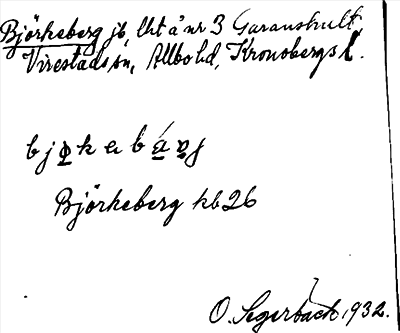 Björkeberg jb, lht å nr 3 Garanshult,
Virestads sn, Allbo hd, Kronobergs l.
Björkeberg kb 26
O. Segerback 1932.